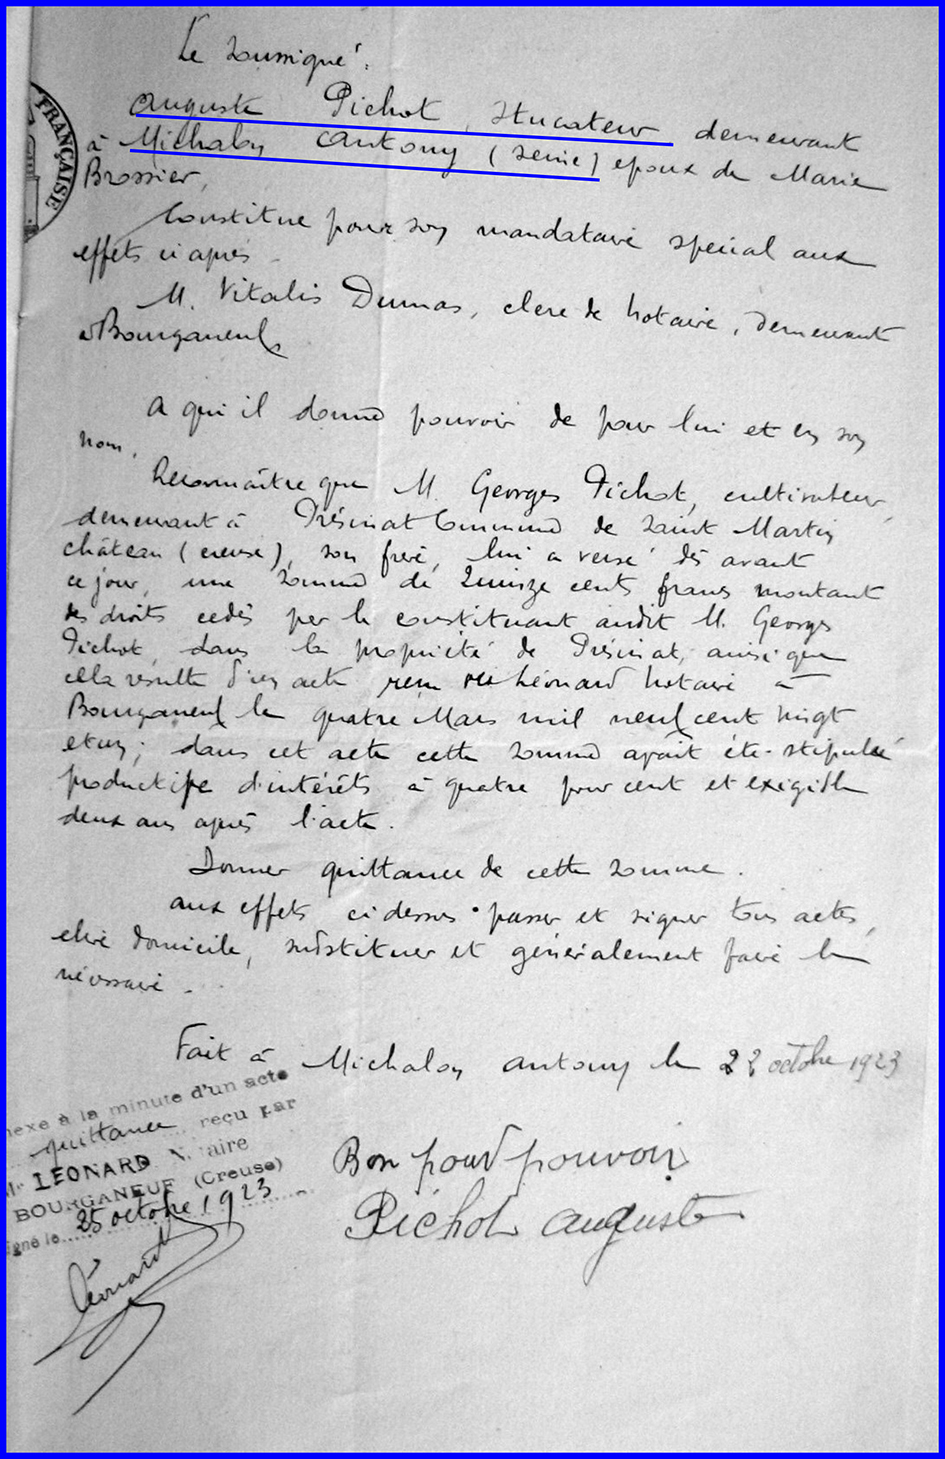 Le soussigné.
FRANÇAISE
Auguste Pichot, stucateur demeurant
à Michalon Antony (Seine) époux de Marie
Brossier,
Constitue pour son mandataire spécial aux
effets ci après
M. Vitalis Dumas, clerc de notaire, demeurant
à Bourganeuf
A qui il donne pouvoir de pour lui et en son
nom,
Reconnaître que M. Georges Pichot, cultivateur,
demeurant à Présinat Commune de Saint Martin
château (creuse), son frère, lui a versé dès avant
ce jour, une somme de quinze cents francs montant
des droits cédés par le constituant audit M. Georges
Pichot, dans la propriété de Présinat, ainsi que
cela résulte d'un acte reçu Me Léonard notaire à
Bourganeuf le quatre Mars mil neuf cent vingt
et un; dans cet acte cette somme avait été stipulée
productive d'intérêts à quatre pour cent et exigible
deux ans après l'acte.
Donner quittance de cette somme.
aux effets ci dessus passer et signer tous actes,
élire domicile, substituer et généralement faire le
nécessaire.
Fait à Michalon Antony le 22 octobre 1923
nexe à la minute d'un acte
quittance reçu par
Me LEONARD N aire
BOURGANEUF (Creuse)
igné le 25 octobre 1923
Léonard
Bon pour pouvoir
Pichot Auguste